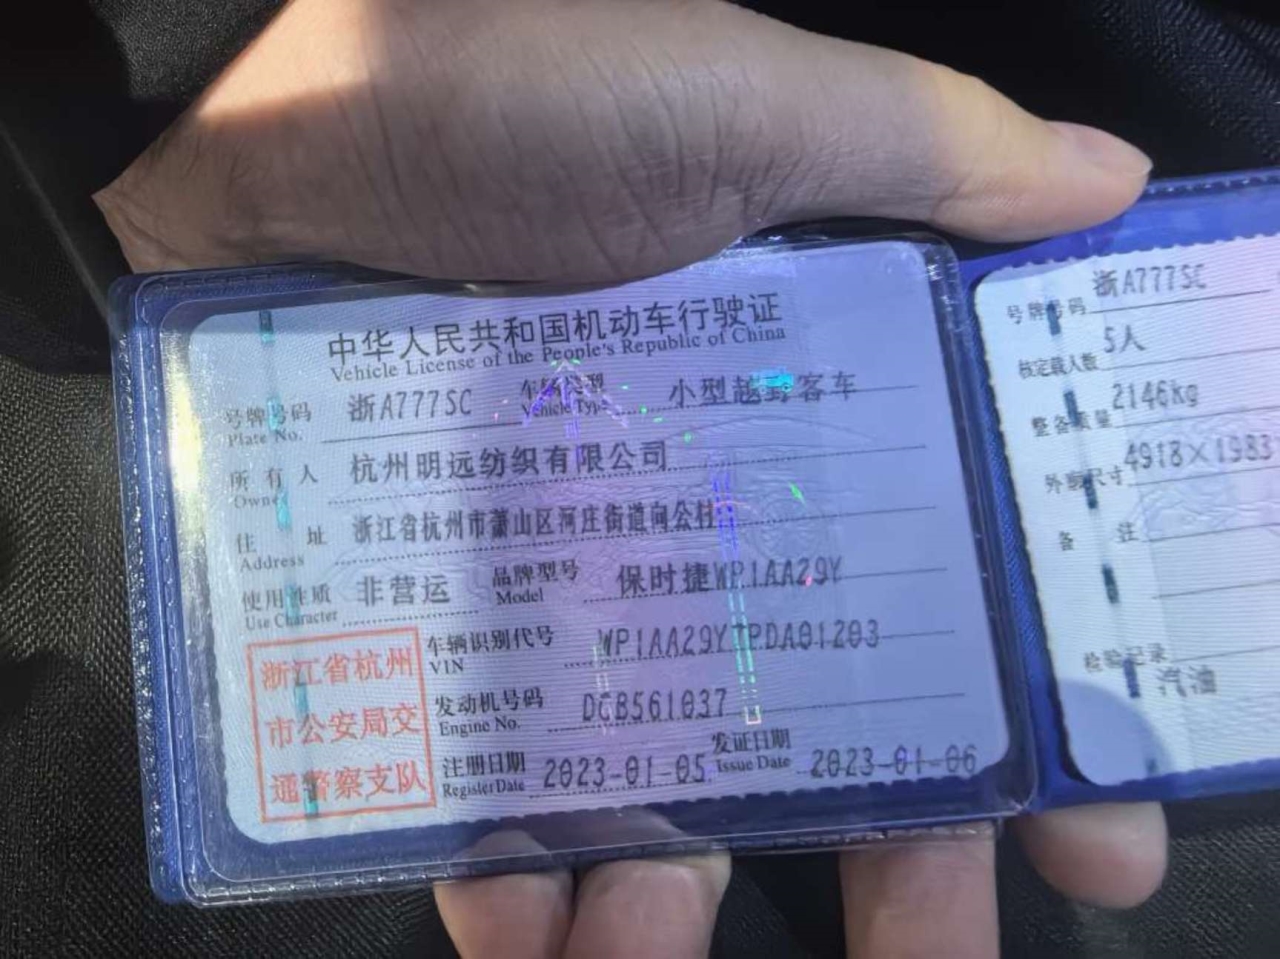 中华人民共和国机动车行驶证
Vehicle License of the People's Republic of China
号牌号码 浙A777SC 车辆类型 小型越野客车
Plate No. Vehicle Type
所有人 杭州明远纺织有限公司
Owner
住址 浙江省杭州市萧山区河庄街道向公村
Address
使用性质 非营运 品牌型号 保时捷WP1AA29Y
Use Character Model
浙江省杭州
市公安局交
通警察支队
车辆识别代号 WP1AA29YTPDA01203
VIN
发动机号码 DCB561037
Engine No.
注册日期 2023-01-05 发证日期 2023-01-06
Register Date Issue Date
号牌号码 浙A777SC
核定载人数 5人
整备质量 2146kg
外廓尺寸 4918×1983
备注
检验记录
汽油